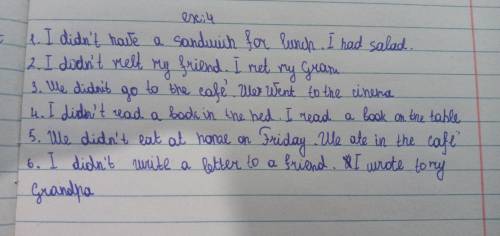 ex:4
1. I didn't have a sandwich for lunch. I had salad.
2. I didn't melt my friend. I met my Gran
3. We didn't go to the café. We went to the cinema
4. I didn't read a book in the bed. I read a book on the table
5. We didn't eat at home on Friday. We ate in the café
6. I didn't write a letter to a friend. I wrote to my
Grandpa